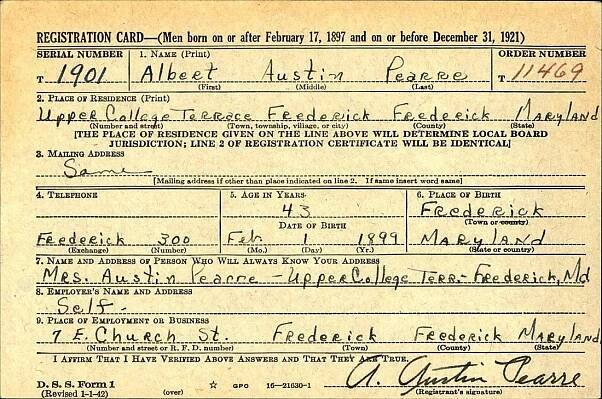 REGISTRATION CARD—(Men born on or after February 17, 1897 and on or before December 31, 1921)
SERIAL NUMBER 1. NAME (Print) ORDER NUMBER
T 1901 Albert Austin Pearre T 11469
(First) (Middle) (Last)
2. PLACE OF RESIDENCE (Print)
Upper College Terrace Frederick Frederick Maryland
(Number and street) (Town, township, village, or city) (County) (State)
[THE PLACE OF RESIDENCE GIVEN ON THE LINE ABOVE WILL DETERMINE LOCAL BOARD
JURISDICTION; LINE 2 OF REGISTRATION CERTIFICATE WILL BE IDENTICAL]
3. MAILING ADDRESS
Same
[Mailing address if other than place indicated on line 2. If same insert word same]
4. TELEPHONE 5. AGE IN YEARS 6. PLACE OF BIRTH
43 Frederick
DATE OF BIRTH (Town or county)
Frederick 300 Feb. 1 1899 Maryland
(Exchange) (Number) (Mo.) (Day) (Yr.) (State or country)
7. NAME AND ADDRESS OF PERSON WHO WILL ALWAYS KNOW YOUR ADDRESS
Mrs. Austin Pearre - Upper College Terr. - Frederick, Md
8. EMPLOYER'S NAME AND ADDRESS
Self -
9. PLACE OF EMPLOYMENT OR BUSINESS
7 E. Church St. Frederick Frederick Maryland
(Number and street or R. F. D. number) (Town) (County) (State)
I AFFIRM THAT I HAVE VERIFIED ABOVE ANSWERS AND THAT THEY ARE TRUE.
D. S. S. Form 1 A. Austin Pearre
(Revised 1-1-42) (over) ☆ GPO 16—21630-1 (Registrant's signature)